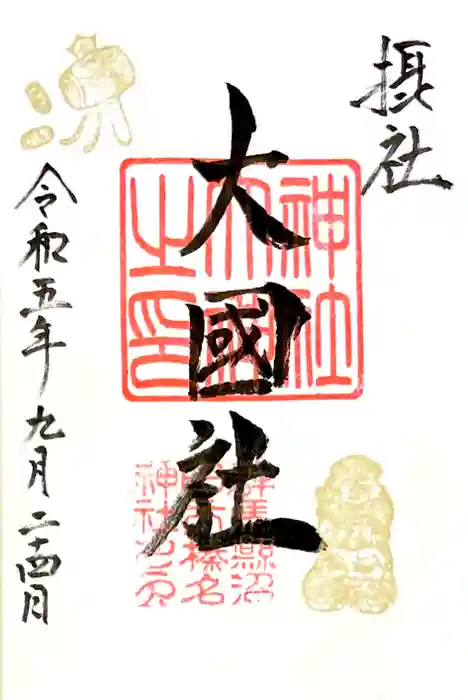 摂社
大國社
令和五年九月二十四日
神社
之印
群馬縣沼
田市榛名
神社